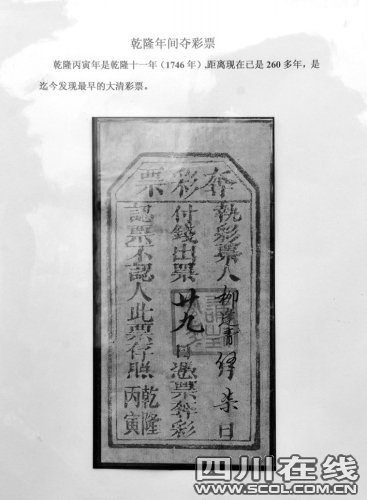 乾隆年间夺彩票
乾隆丙寅年是乾隆十一年（1746 年）,距离现在已是 260 多年，是
迄今发现最早的大清彩票。
彩票
執彩票人柳柒日
付錢出票廿九日憑票彩
認票不認人此票存照乾隆丙寅
四川在线
WWW.SCOL.COM.CN